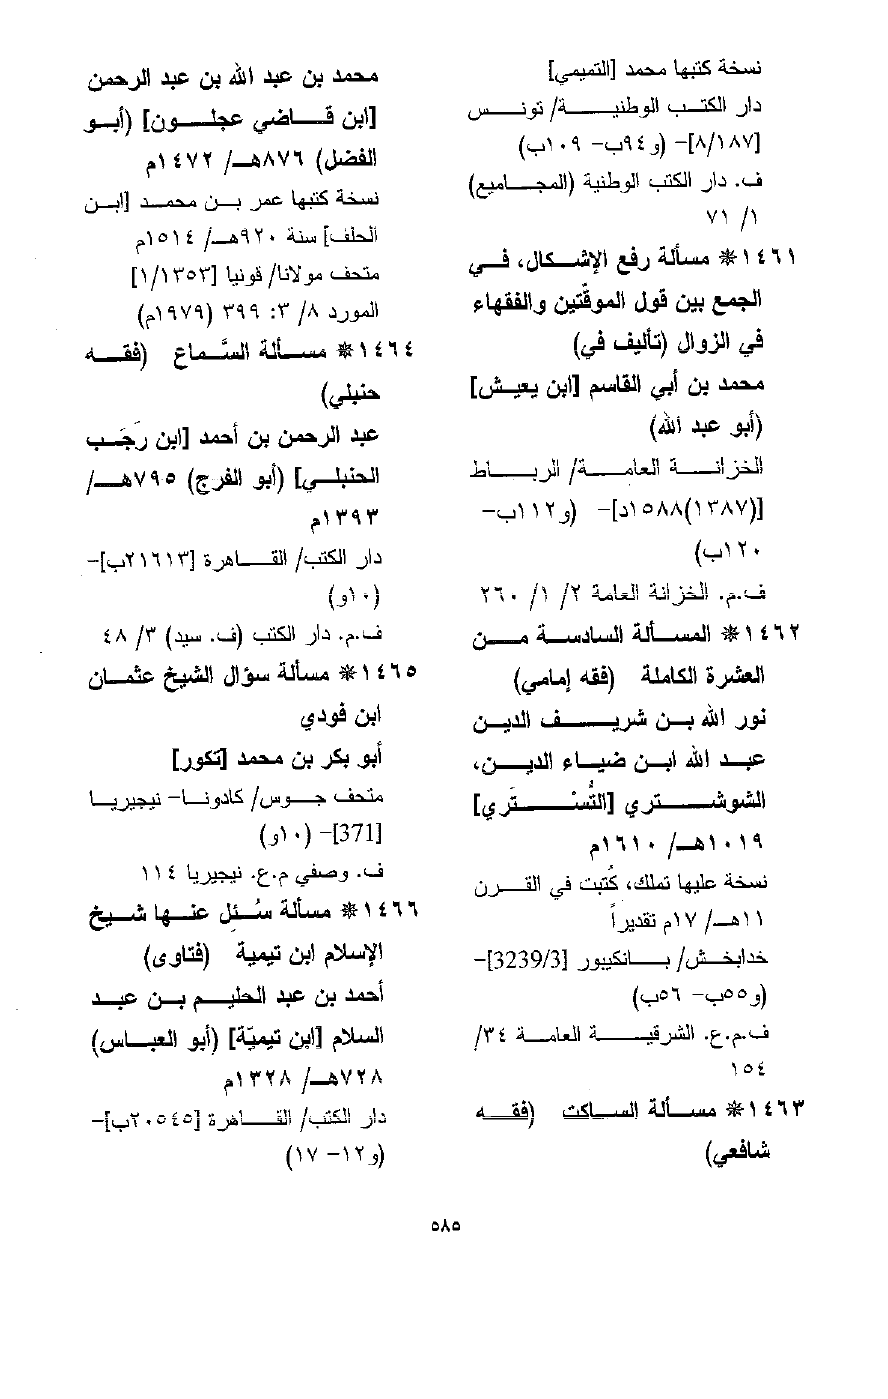 نسخة كتبها محمد [التميمي]
دار الكتب الوطنية/ تونس
[٨/١٨٧]- (و٩٤ب- ١٠٩ب)
ف. دار الكتب الوطنية (المجاميع)
١/ ٧١
١٤٦١* مسألة رفع الإشكال، في
الجمع بين قول الموقّتين والفقهاء
في الزوال (تأليف في)
محمد بن أبي القاسم [ابن يعيش]
(أبو عبد الله)
الخزانة العامة/ الرباط
[(١٣٨٧)١٥٨٨د]- (و١١٢ب-
١٢٠ب)
ف.م. الخزانة العامة ٢/ ١/ ٢٦٠
١٤٦٢* المسألة السادسة من
العشرة الكاملة (فقه إمامي)
نور الله بن شريف الدين
عبد الله ابن ضياء الدين،
الشوشتري [التُسْتَري]
١٠١٩هـ/ ١٦١٠م
نسخة عليها تملك، كُتبت في القرن
١١هـ/ ١٧م تقديراً
خدابخش/ بانكيبور [3239/3]-
(و٥٥ب- ٥٦ب)
ف.م.ع. الشرقية العامة ٣٤/
١٥٤
١٤٦٣* مسألة الساكت (فقه
شافعي)
محمد بن عبد الله بن عبد الرحمن
[ابن قاضي عجلون] (أبو
الفضل) ٨٧٦هـ/ ١٤٧٢م
نسخة كتبها عمر بن محمد [ابن
الحلف] سنة ٩٢٠هـ/ ١٥١٤م
متحف مولانا/ قونيا [١/١٣٥٣]
المورد ٨/ ٣: ٣٩٩ (١٩٧٩م)
١٤٦٤* مسألة السَّماع (فقه
حنبلي)
عبد الرحمن بن أحمد [ابن رَجَب
الحنبلي] (أبو الفرج) ٧٩٥هـ/
١٣٩٣م
دار الكتب/ القاهرة [٢١٦١٣ب]-
(١٠و)
ف.م. دار الكتب (ف. سيد) ٣/ ٤٨
١٤٦٥* مسألة سؤال الشيخ عثمان
ابن فودي
أبو بكر بن محمد [تكور]
متحف جوس/ كادونا- نيجيريا
[371]- (١٠و)
ف. وصفي م.ع. نيجيريا ١١٤
١٤٦٦* مسألة سُئل عنها شيخ
الإسلام ابن تيمية (فتاوى)
أحمد بن عبد الحليم بن عبد
السلام [ابن تيميّة] (أبو العباس)
٧٢٨هـ/ ١٣٢٨م
دار الكتب/ القاهرة [٢٠٥٤٥ب]-
(و١٢- ١٧)
٥٨٥